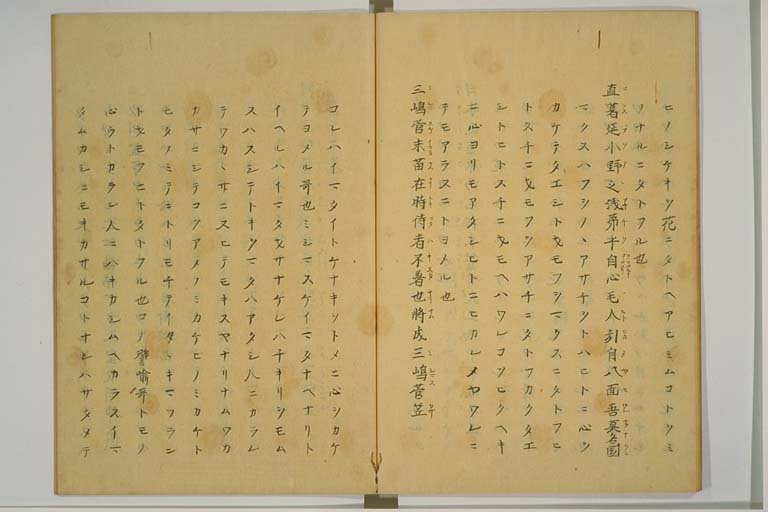 ヒノシケキソ花ニタトヘアヒミムコトソミ
ソナルニタトフル也
真葛延小野之浅茅乎自心毛人引目八面吾莫名国
マクスハフシノヽアサチヲトハヒトニ心ヲ
カケテタエシトオモフヲマクスニタトフヒ
トスチニオモフヲアサチニタトフカクタエ
シトヒトスチニオモヘハワレコソヒクヘキ
ニ心ヨリモアタシヒトニヒカレメヤワレニ
テモアラスニトヨメル也
三嶋菅未苗在時待者不著也将成三嶋菅笠
コレハイマタイトケナキヲトメニ心ヲカケ
テヨメル哥也ミシマスケイマタナヘナリト
イヘルハイマタオサナケレハチキリヲモム
スハスシテトキヲマタハアタシ人ニカラレ
テワカミサニスヒテモキスヤナリナムワカ
カサニシテコソアメノミカケヒノミカケト
モタノミテニトリモチテイタヽキマツラン
トオモフニヒタトタトフル也コノ譬喩哥トモソ
心ウトカラン人ニハキカシムヘカラスイマ
タムカシニモオカサルコトナレハサタメテ